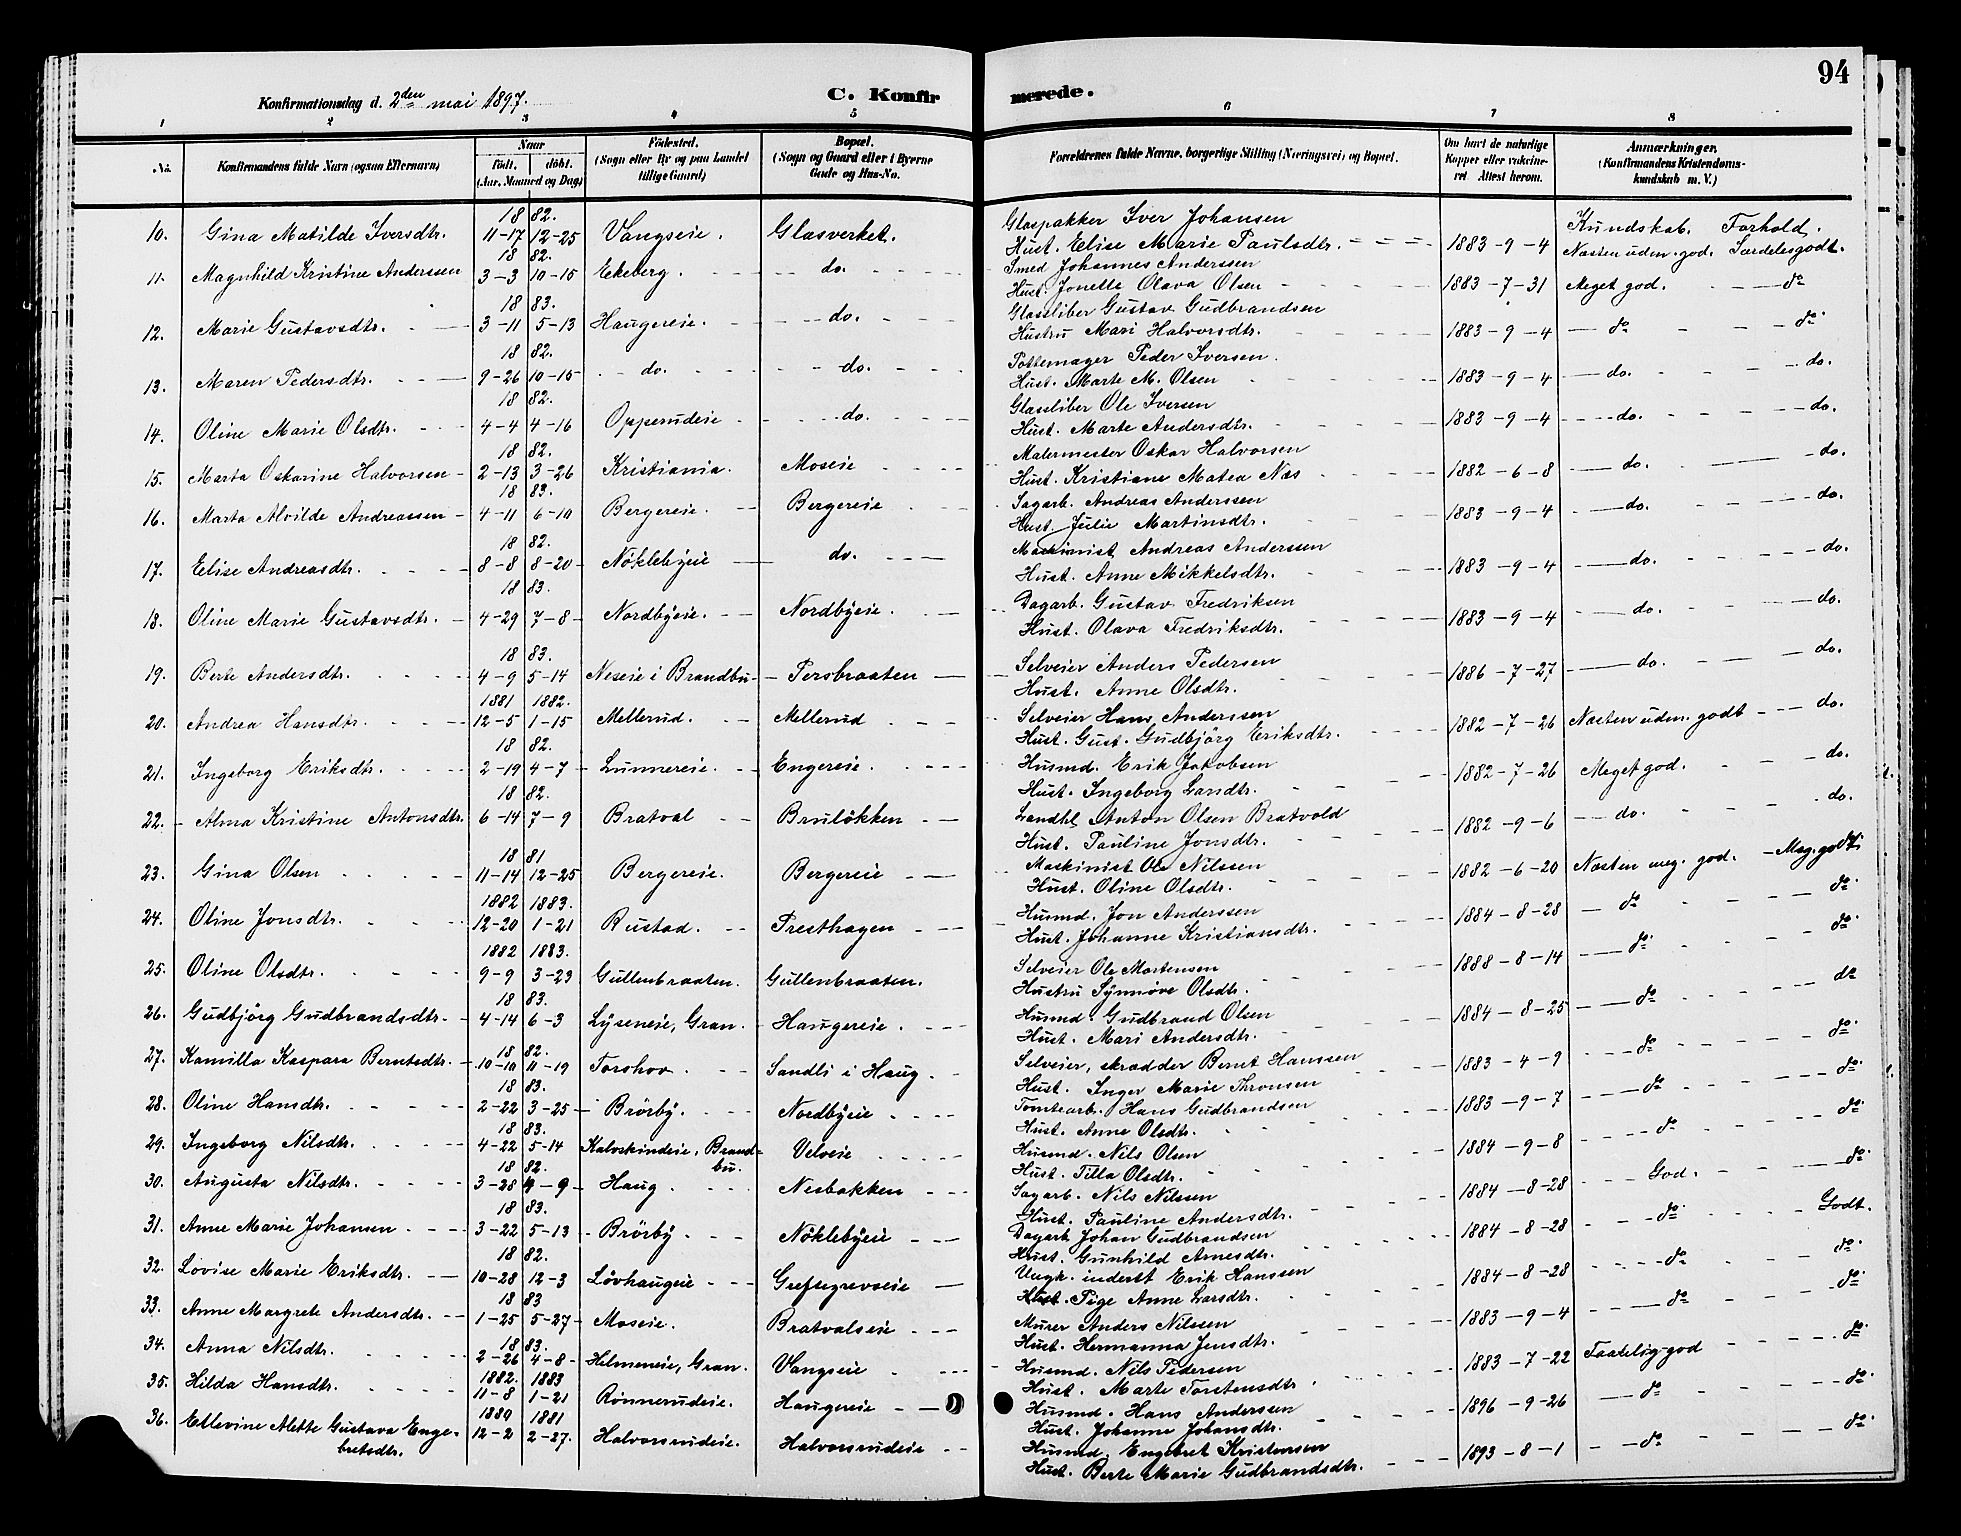 94
Konfirmationsdag d. 2den mai 1897.
C. Konfirmerede.
1 2 3 4 5 6 7 8
No. Konfirmandens fulde Navn (ogsaa Efternavn) Naar født, døbt. (Aar, Maaned og Dag) Fødested. (Sogn eller By og paa Landet tillige Gaard) Bopæl. (Sogn og Gaard eller i Byerne Gade og Hus-No. Forældrenes fulde Navne, borgerlige Stilling (Næringsvei) og Bopæl. Om havt de naturlige Kopper eller vakcineret. Attest herom. Anmærkninger. (Konfirmandens Kristendomskundskab m. V.)
18 82. Glaspakker Iver Johansen Kundskab. Forhold.
10. Gina Matilde Iversdtr. 11-17 12-25 Vangseie. Glasverket. Hust. Elise Marie Paulsdtr. 1883-9-4 Næsten udm. god. Særdeles godt.
18 82. Smed Johannes Anderssen
11. Magnhild Kristine Anderssen 3-3 10-15 Ekeberg. do. Hust. Jonette Olava Olsen 1883-7-31 Meget god. do
18 83. Glassliber Gustav Gudbrandsen
12. Marie Gustavsdtr. 3-11 5-13 Haugereie. do. Hustru Mari Halvorsdtr. 1883-9-4 do do
18 82. Pottemager Peder Iversen.
13. Maren Pedersdtr. 9-26 10-15 do. do. Hust. Marte M. Olsen 1883-9-4 do. do.
18 82. Glassliber Ole Iversen
14. Oline Marie Olsdtr. 4-4 4-16 Opperudeie do. Hust. Marte Andersdtr. 1883-9-4 do. do.
18 82. Malermester Oskar Halvorsen
15. Marta Oskarine Halvorsen 2-13 3-26 Kristiania. Moseie Hust. Kristiane Matea Næs 1882-6-8 do. do.
18 83. Sagarb. Andreas Anderssen
16. Marta Alvilde Andreassen 4-11 6-10 Bergereie. Bergereie Hust. Julie Martinsdtr. 1883-9-4 do. do.
18 82. Maskinist Andreas Anderssen
17. Elise Andreasdtr. 8-8 8-20 Nøklebyeie do. Hust. Anne Mikkelsdtr. 1883-9-4 do. do.
18 83. Dagarb. Gustav Fredriksen
18. Oline Marie Gustavsdtr. 4-29 7-8 Nordbyeie. Nordbyeie. Hust. Olava Fredriksdtr. 1883-9-4 do. do.
18 83. Selveier Anders Pedersen
19. Berte Andersdtr. 4-9 5-14 Neseie i Brandbu Persbraaten Hust. Anne Olsdtr. 1886-7-27 do. do.
1881 1882. Selveier Hans Anderssen
20. Andrea Hansdtr. 12-5 1-15 Mellerud. Mellerud Hust. Gust. Gudbjörg Eriksdtr. 1882-7-26 Næsten udm. godt do.
18 82. Husmd. Erik Jakobsen
21. Ingeborg Eriksdtr. 2-19 4-7 Lunnereie. Engereie. Hust. Ingeborg Larsdtr. 1882-7-26 Meget god. do.
18 82. Landhl. Anton Olsen Bratvold
22. Alma Kristine Antonsdtr. 6-14 7-9 Bratval Bruløkken Hust. Pauline Jonsdtr. 1882-9-6 do. do.
18 81 Maskinist Ole Nilssen
23. Gina Olsen 11-14 12-25 Bergereie. Bergereie Hust. Oline Olsdtr. 1882-6-20 Næsten meg. god. Meg. godt
1882 1883. Husmd. Jon Anderssen
24. Oline Jonsdtr. 12-20 1-21 Rustad. Presthagen Hust. Johanne Kristiansdtr. 1884-8-28 do do
1882 1883. Selveier Ole Mortensen
25. Oline Olsdtr. 9-9 3-23 Gullenbraaten. Gullenbraaten. Hustru Synnøve Olsdtr. 1888-8-14 do do
18 83. Husmd. Gudbrand Olsen
26. Gudbjörg Gudbrandsdtr. 4-14 6-3 Lyseneie, Gran. Haugereie. Hust. Mari Andersdtr. 1884-8-25 do do
18 82. Selveier, skrædder Bernt Hanssen
27. Kamilla Kaspara Berntsdtr. 10-10 11-19 Torshov. Sandli i Haug. Hust. Inger Marie Thronsen 1883-4-9 do do
18 83. Tomtearb. Hans Gudbrandsen
28. Oline Hansdtr. 2-22 3-25 Brörby. Nordbyeie Hust. Anne Olsdtr. 1883-9-7 do do
18 83. Husmd. Nils Olsen
29. Ingeborg Nilsdtr. 4-22 5-14 Kalvskindeie, Brandbu. Velveie Hust. Tilla Olsdtr. 1884-9-8 do do
18 82. Sagarb. Nils Nilssen
30. Augusta Nilsdtr. 3-28 4-9 Haug. Nesbakken Hust. Pauline Andersdtr. 1884-8-28 God. do
18 83. Dagarb. Johan Gudbrandsen
31. Anne Marie Johansen 3-22 5-13 Brörby. Nöklebyeie Hust. Gunhild Arnesdtr. 1884-8-28 do Godt.
18 82. Ungk. inderst Erik Hanssen
32. Lovise Marie Eriksdtr. 10-28 12-3 Løvhaugeie Grefsegrevseie Pige Anne Larsdtr. 1884-8-28 do do
18 83 Murer Anders Nilssen
33. Anne Margrete Andersdtr. 1-25 5-27 Moseie. Bratvalseie Hust. Hermanna Jensdtr. 1883-9-4 do do
18 83. Husmd. Nils Pedersen
34. Anna Nilsdtr. 2-26 4-8 Helmeneie, Gran. Vangseie Hust. Marte Torstensdtr. 1883-7-22 Taalelig god do
1882. 1883 Husmd. Hans Anderssen
35. Hilda Hansdtr. 11-8 1-21 Rønnerudeie. Haugereie Hust. Johanne Johansdtr. 1896-9-26 do do
1880 1881 Husmd. Engebret Kristensen
36. Etlevine Alette Gustava Engebretsdtr. 12-2 2-27. Halvorsrudeie. Halvorsrudeie Hust. Berte Marie Gudbrandsdtr. 1893-8-1 do do